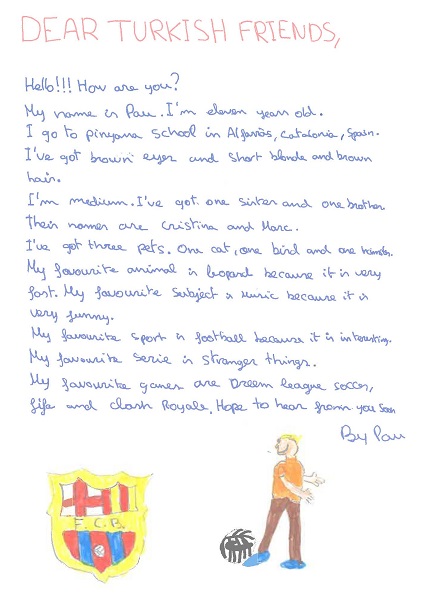 DEAR TURKISH FRIENDS,
Hello!!! How are you?
My name is Pau. I'm eleven years old.
I go to pinyana school in Alfarràs, Catalonia, Spain.
I've got brown eyes and short blonde and brown
hair.
I'm medium. I've got one sister and one brother.
Their names are Cristina and Marc.
I've got three pets. One cat, one bird and one hamster.
My favourite animal is leopard because it is very
fast. My favourite subject is Music because it is
very funny.
My favourite sport is football because it is interesting.
My favourite serie is stranger things.
My favourite games are Dream league soccer,
fifa and clash Royale. Hope to hear from you soon
By Pau
F.C.B.